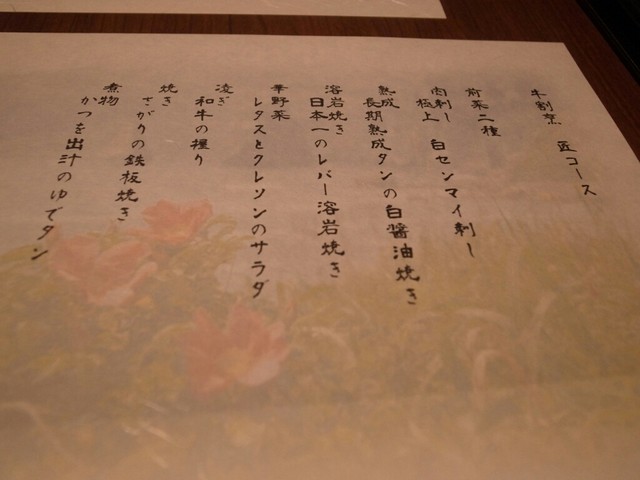 牛割烹　匠コース
前菜二種
肉刺し
極上　白センマイ刺し
熟成
長期熟成タンの白醤油焼き
溶岩焼き
日本一のレバー溶岩焼き
華野菜
レタスとクレソンのサラダ
凌ぎ
和牛の握り
焼き
さがりの鉄板焼き
煮物
かつを出汁のゆでタン